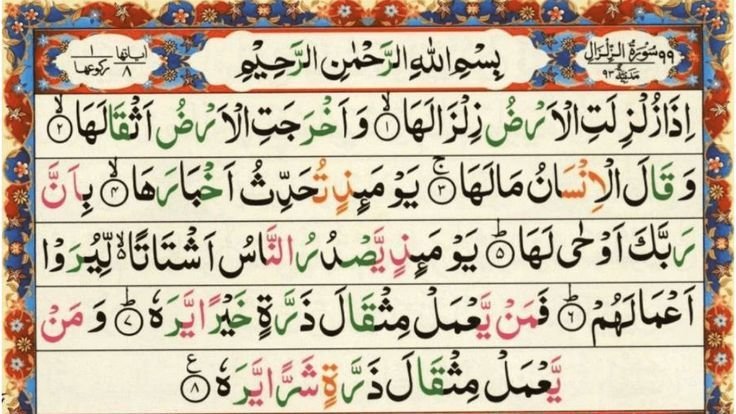 ۹۹ سُوْرَةُ الزِّلْزَالِ مَدَنِيَّةٌ ۹۳
بِسْمِ اللّٰهِ الرَّحْمٰنِ الرَّحِيْمِ
اٰيَاتُهَا ۸ رُكُوْعُهَا ۱
اِذَا زُلْزِلَتِ الْاَرْضُ زِلْزَالَهَا ۙ‏﴿۱﴾ وَ اَخْرَجَتِ الْاَرْضُ اَثْقَالَهَا ۙ‏﴿۲﴾
وَ قَالَ الْاِنْسَانُ مَا لَهَا ۚ‏﴿۳﴾ يَوْمَئِذٍ تُحَدِّثُ اَخْبَارَهَا ۙ‏﴿۴﴾ بِاَنَّ
رَبَّكَ اَوْحٰى لَهَا ؕ‏﴿۵﴾ يَوْمَئِذٍ يَّصْدُرُ النَّاسُ اَشْتَاتًا ۙ۬ لِّيُرَوْا
اَعْمَالَهُمْ ؕ‏﴿۶﴾ فَمَنْ يَّعْمَلْ مِثْقَالَ ذَرَّةٍ خَيْرًا يَّرَهٗ ؕ‏﴿۷﴾ وَ مَنْ
يَّعْمَلْ مِثْقَالَ ذَرَّةٍ شَرًّا يَّرَهٗ ﴿۸﴾ ع